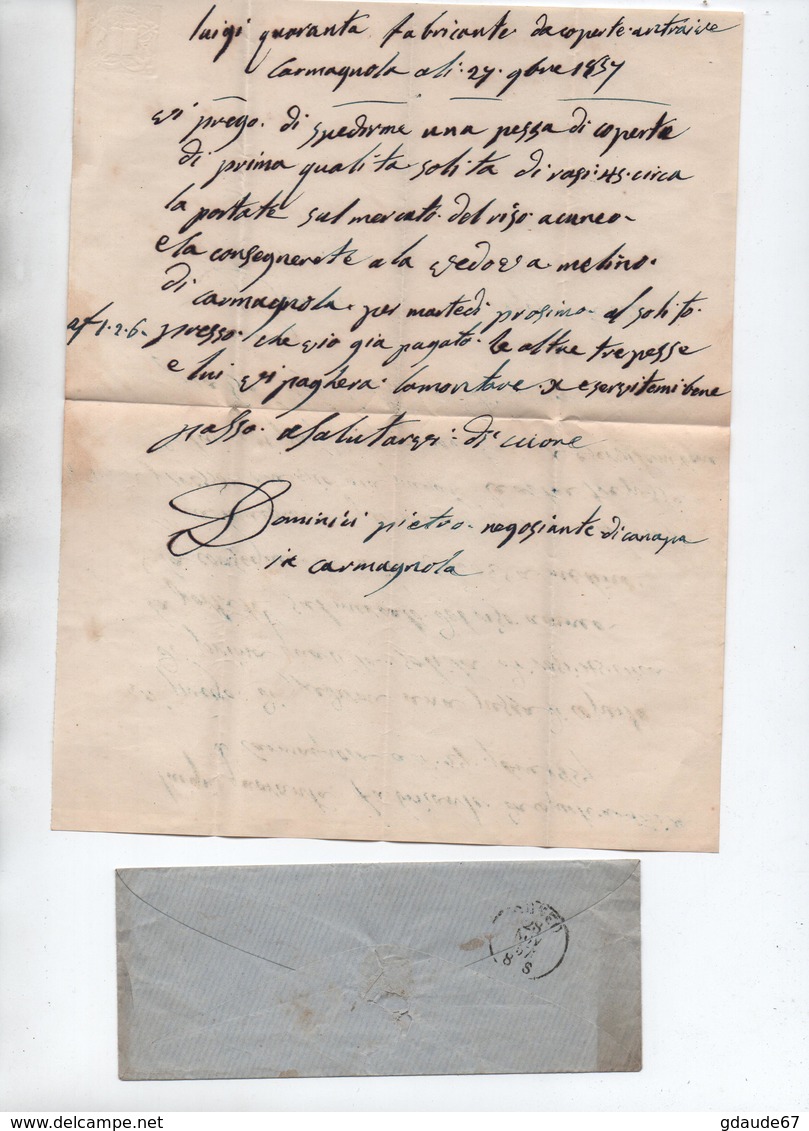 luigi quaranta fabricante da coperte antraive
Carmagnola ali 27 9bre 1857
vi prego di spedirme una pessa di coperte
di prima qualita solita di rasi 45 circa
la portate sul mercato del riso a cuneo
e la consegnerete a la vedova melino
di carmagnola per martedi prosimo al solito
presso che vio gia pagato le altre tre pesse
e lui vi paghera lamontare e servitemi bene
passo a Salutarvi di cuore
Dominici pietro negosiante di canapa
in carmagnola
gdaude67